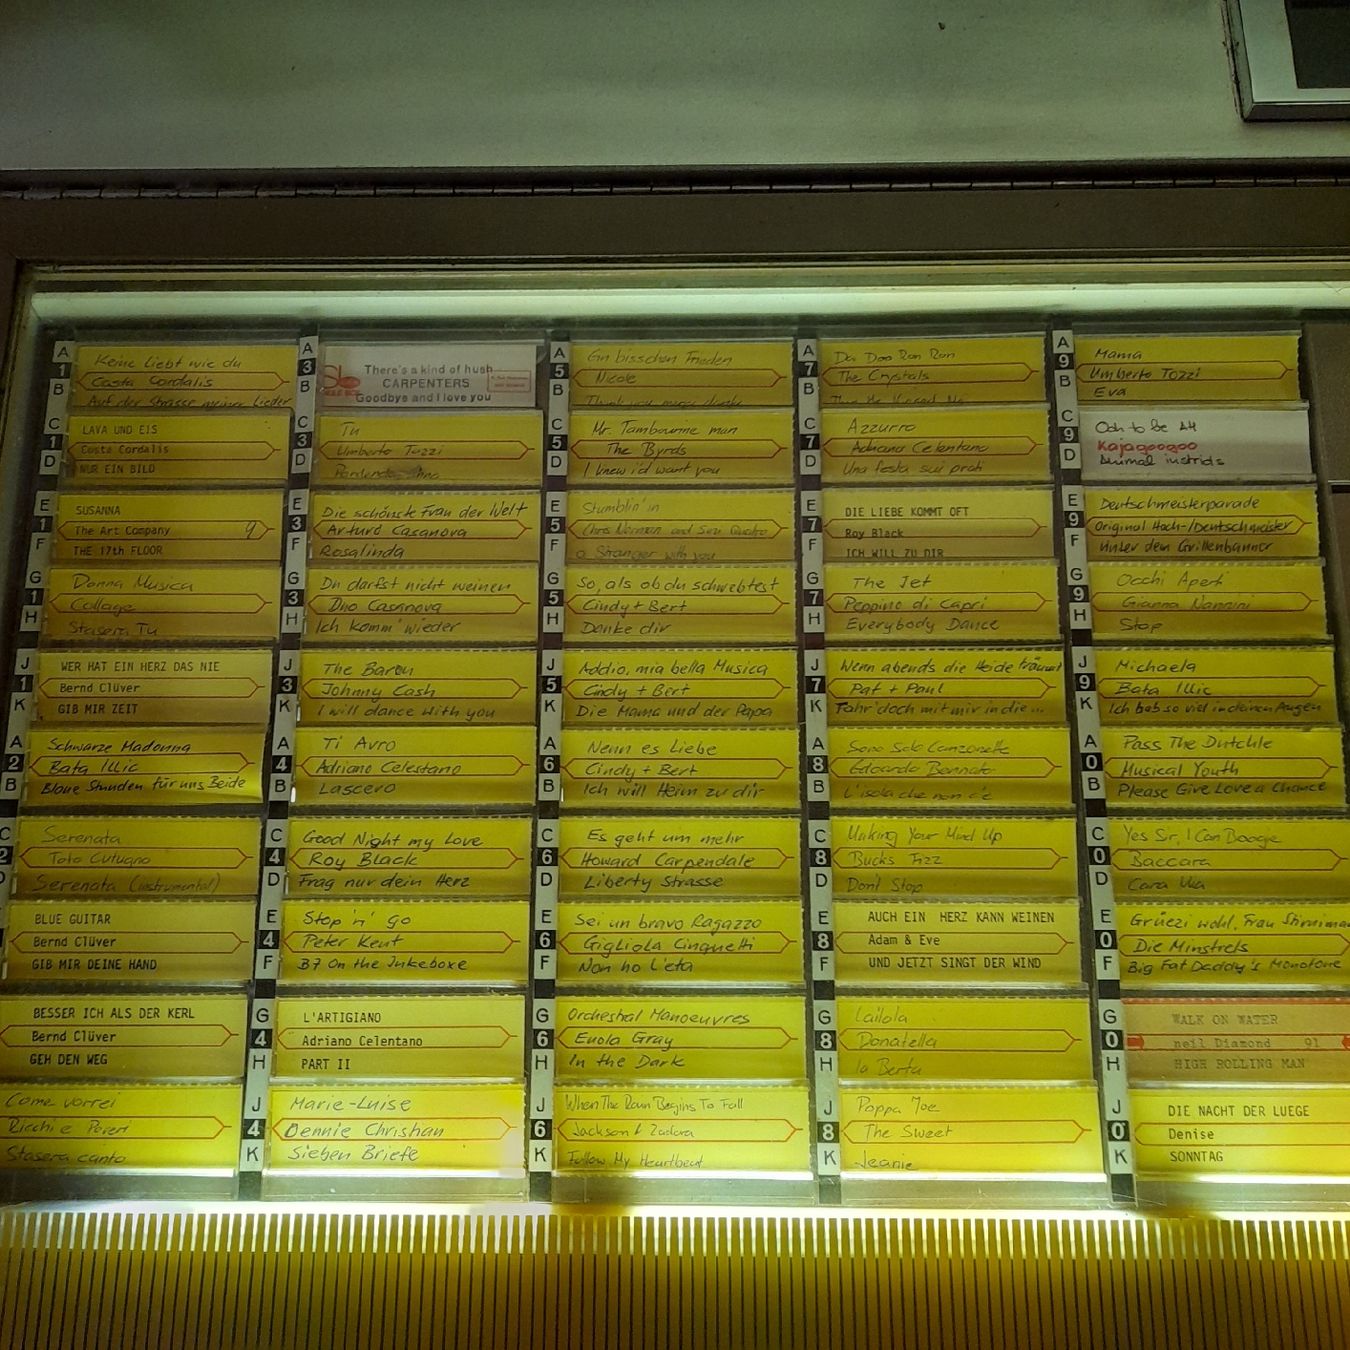 A
1
B
Keine liebt wie du
Costa Cordalis
Auf der Strasse meiner Lieder
C
1
D
LAVA UND EIS
Costa Cordalis
NUR EIN BILD
E
1
F
SUSANNA
The Art Company 9
THE 17th FLOOR
G
1
H
Donna Musica
Collage
Stasera Tu
J
1
K
WER HAT EIN HERZ DAS NIE
Bernd Clüver
GIB MIR ZEIT
A
2
B
Schwarze Madonna
Bata Illic
Blaue Stunden für uns Beide
C
2
D
Serenata
Toto Cutugno
Serenata (instrumental)
BLUE GUITAR
Bernd Clüver
GIB MIR DEINE HAND
BESSER ICH ALS DER KERL
Bernd Clüver
GEH DEN WEG
Come vorrei
Ricchi e Poveri
Stasera canto
A
3
B
There's a kind of hush
CARPENTERS
Goodbye and I love you
C
3
D
Tu
Umberto Tozzi
Perdendo
E
3
F
Die schönste Frau der Welt
Arturo Casanova
Rosalinda
G
3
H
Du darfst nicht weinen
Duo Casanova
Ich komm' wieder
J
3
K
The Baron
Johnny Cash
I will dance with you
A
4
B
Ti Avro
Adriano Celestano
Lascero
C
4
D
Good Night my Love
Roy Black
Frag nur dein Herz
E
4
F
Stop 'n' go
Peter Kent
B7 On the Jukeboxe
G
4
H
L'ARTIGIANO
Adriano Celentano
PART II
J
4
K
Marie-Luise
Dennie Christian
Sieben Briefe
A
5
B
Ein bisschen Frieden
Nicole
Thank you
C
5
D
Mr. Tambourine man
The Byrds
I knew i'd want you
E
5
F
Stumblin' in
Chris Norman and Suzi Quatro
a Stranger with you
G
5
H
So, als ob du schwebtest
Cindy + Bert
Danke dir
J
5
K
Addio, mia bella Musica
Cindy + Bert
Die Mama und der Papa
A
6
B
Nenn es Liebe
Cindy + Bert
Ich will Heim zu dir
C
6
D
Es geht um mehr
Howard Carpendale
Liberty Strasse
E
6
F
Sei un bravo Ragazzo
Gigliola Cinquetti
Non ho l'eta
G
6
H
Orchestral Manoeuvres
Enola Gray
In the Dark
J
6
K
When The Rain Begins To Fall
Jackson & Zadora
Follow My Heartbeat
A
7
B
Da Doo Ron Ron
The Crystals
Then He Kissed Me
C
7
D
Azzurro
Adriano Celentano
Una festa sui prati
E
7
F
DIE LIEBE KOMMT OFT
Roy Black
ICH WILL ZU DIR
G
7
H
The Jet
Peppino di Capri
Everybody Dance
J
7
K
Wenn abends die Heide träumt
Pat + Paul
Fahr' doch mit mir in die ...
A
8
B
Sono Solo Canzonette
Edoardo Bennato
L'isola che non c'è
C
8
D
Making Your Mind Up
Bucks Fizz
Don't Stop
E
8
F
AUCH EIN HERZ KANN WEINEN
Adam & Eve
UND JETZT SINGT DER WIND
G
8
H
Lailola
Donatella
la Berta
J
8
K
Poppa Joe
The Sweet
Jeanie
A
9
B
Mama
Umberto Tozzi
Eva
C
9
D
Ooh to be AH
Kajagoogoo
Animal instrids
E
9
F
Deutschmeisterparade
Original Hoch-/Deutschmeister
Unter dem Grillenbanner
G
9
H
Occhi Aperti
Gianna Nannini
Stop
J
9
K
Michaela
Bata Illic
Ich hab so viel in deinen Augen
A
0
B
Pass The Dutchie
Musical Youth
Please Give Love a Chance
C
0
D
Yes Sir, I Can Boogie
Baccara
Cara Mia
E
0
F
Grüezi wohl, Frau Stirnima
Die Minstrels
Big Fat Daddy's Monotone
G
0
H
WALK ON WATER
neil Diamond 91
HIGH ROLLING MAN
J
0
K
DIE NACHT DER LUEGE
Denise
SONNTAG